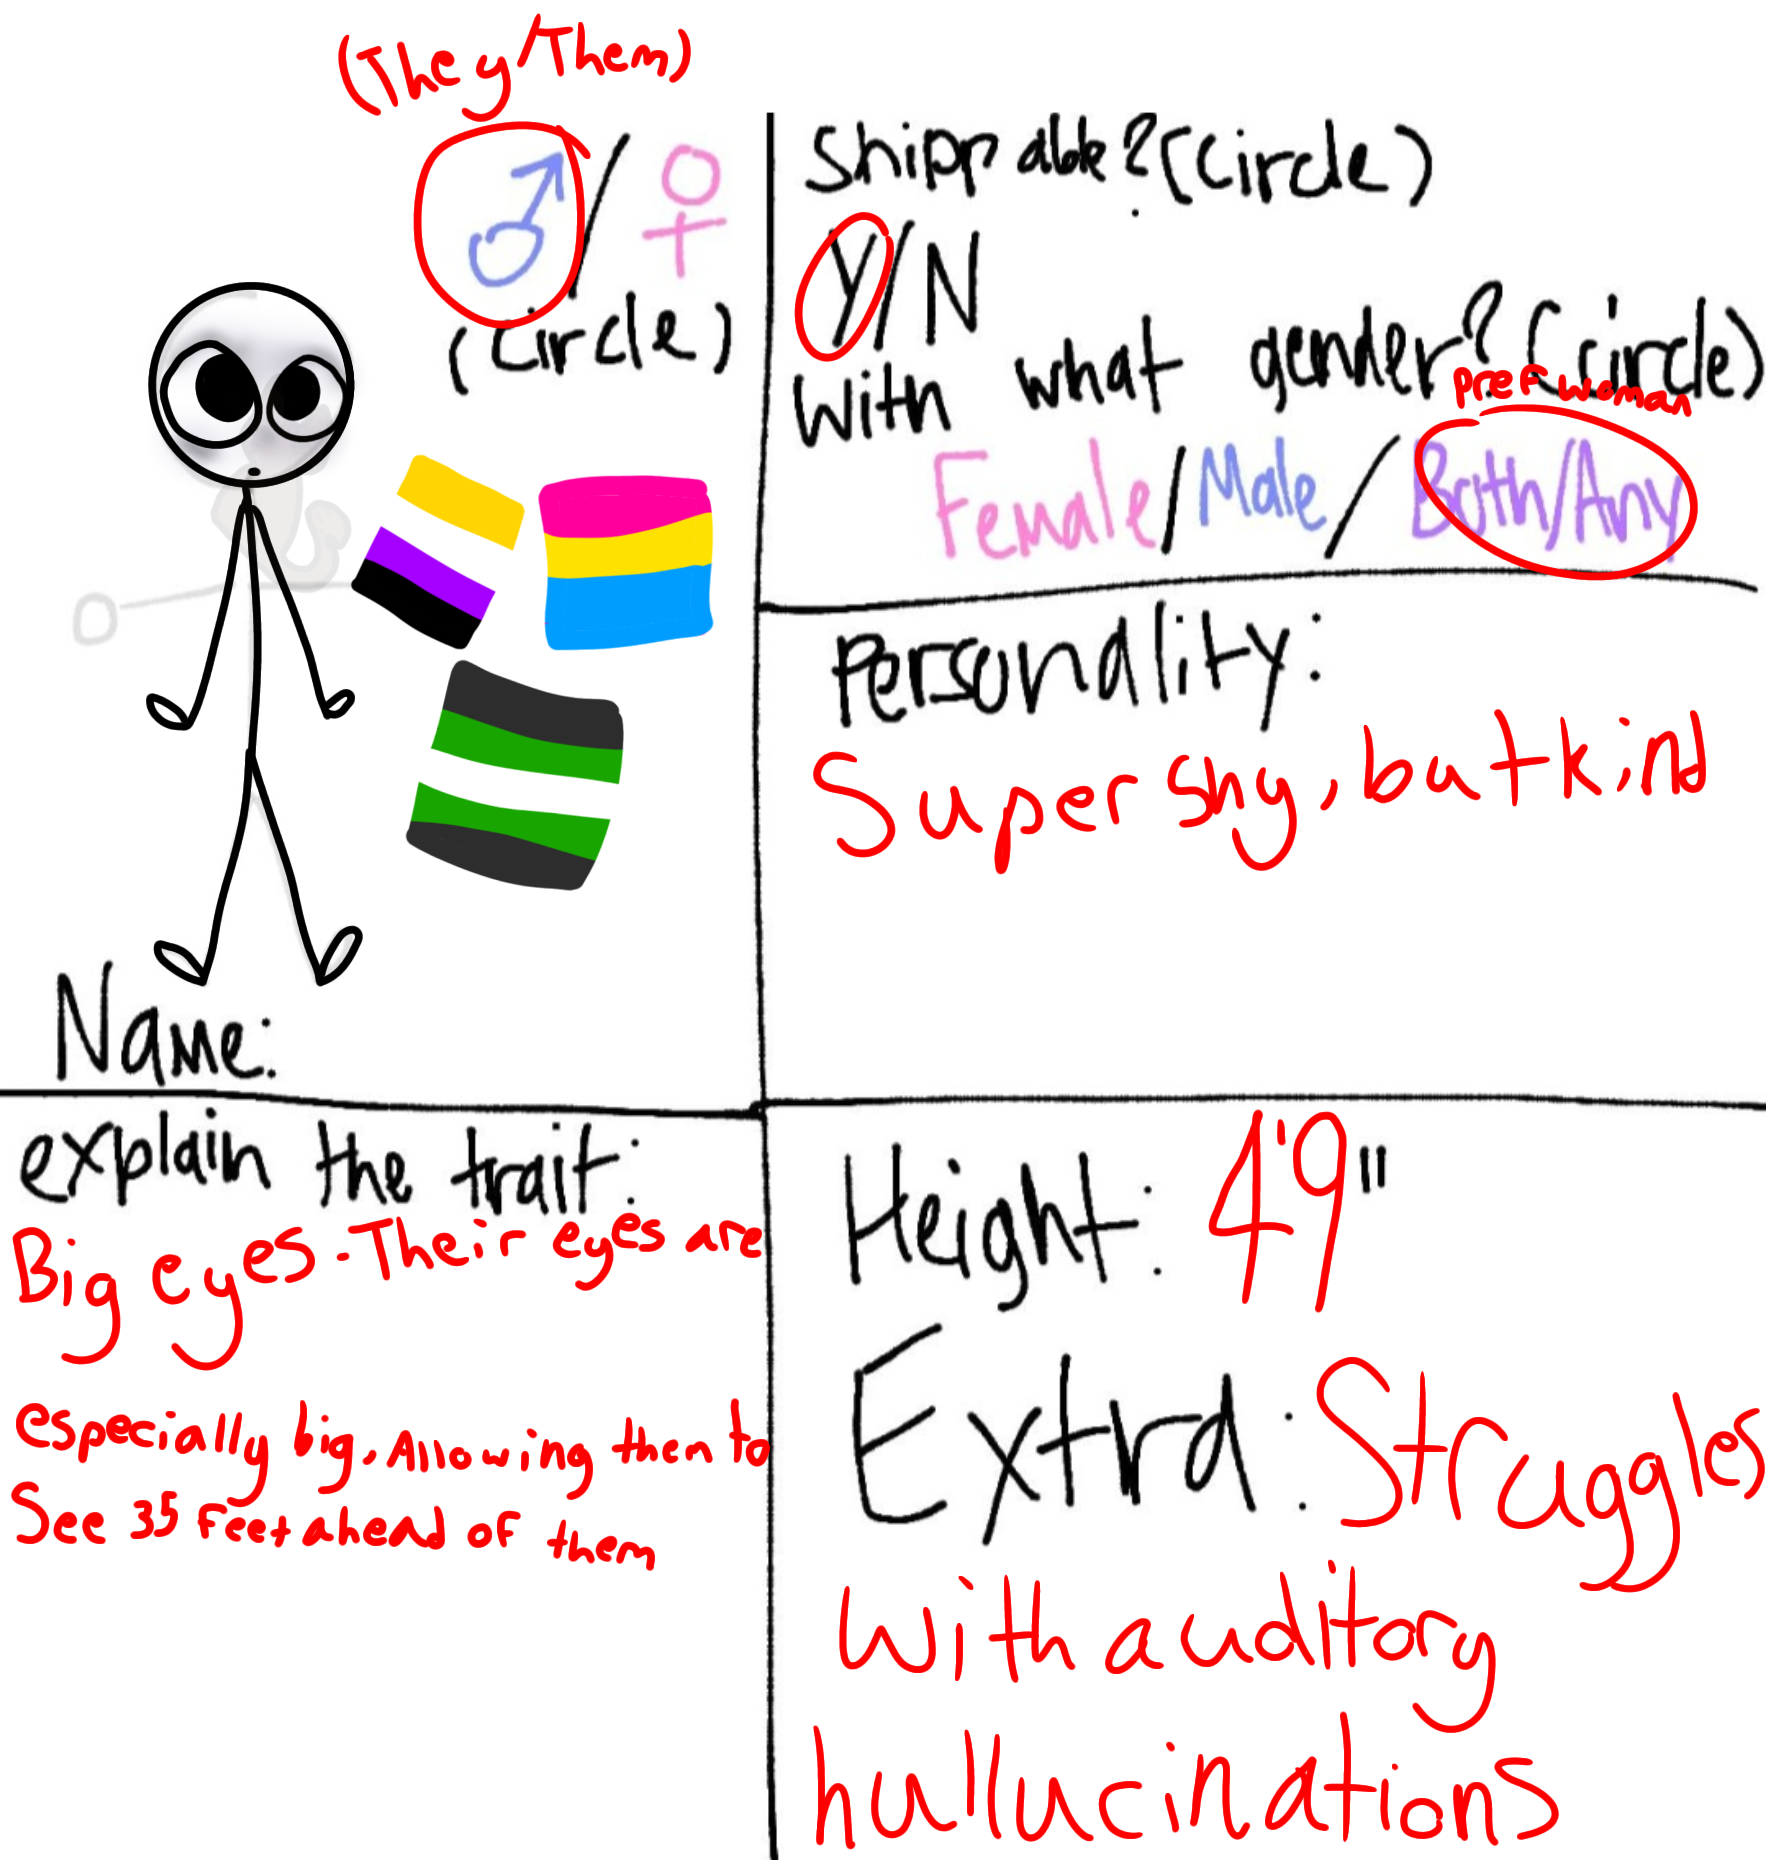 (They/Them)
♂/♀
(circle)
Name:
shippable?(circle)
Y/N
with what gender?(circle)
pref woman
Female/Male/Both/Any
Personality:
Super shy, but kind
explain the trait:
Big eyes - Their eyes are
especially big, Allowing them to
See 35 feet ahead of them
Height: 4'9"
Extra: Struggles
With auditory
hullucinations